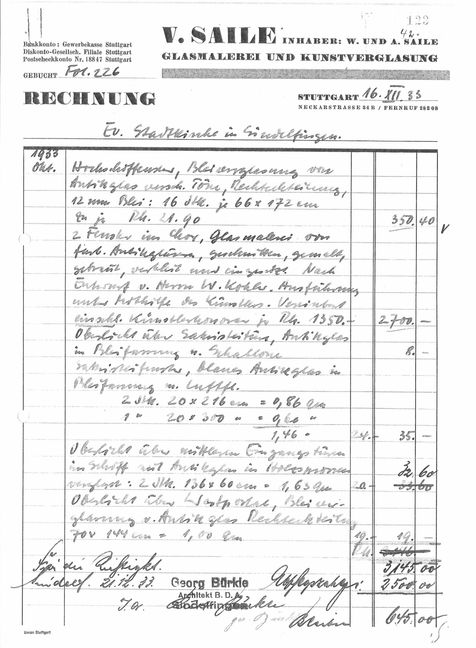 122
42.
V. SAILE INHABER: W. UND A. SAILE
GLASMALEREI UND KUNSTVERGLASUNG
Bankkonto: Gewerbekasse Stuttgart
Diskonto-Gesellsch. Filiale Stuttgart
Postscheckkonto Nr. 18847 Stuttgart
GEBUCHT Fol. 226
RECHNUNG
STUTTGART 16. XII. 33
NECKARSTRASSE 36B / FERNRUF
Ev. Stadtkirche in Sindelfingen.
1933
Okt. Hochschiffenster, Bleiverglasung von
Antikglas versch. Töne, Rechteckteilung,
12 mm Blei: 16 Stk. je 66 x 172 cm
zu je Rk. 21.90 350.40
2 Fenster im Chor, Glasmalerei von
farb. Antikgläsern, geschnitten, gemalt,
gebrannt, verbleit und eingesetzt. Nach
Entwurf v. Herrn W. Kohler. Ausführung
unter Mithilfe des Künstlers. Vereinbart
einschl. Künstlerhonorar je Rk. 1350.- 2700.-
Oberlicht über Sakristeitüre, Antikglas
in Bleifassung n. Schablone 8.-
Sakristeifenster, blaues Antikglas in
Bleifassung u. Luftfl.
2 Stk. 20 x 216 cm = 0,86 qm
1 " 20 x 300 " = 0,60 "
1,46 " 24.- 35.-
Oberlicht über mittleren Eingangstüren
im Schiff mit Antikglas in Holzsprossen
verglast: 2 Stk. 136 x 60 cm = 1,63 qm 20.- 33.60
32.60
Oberlicht über Westportal, Bleiver-
glasung v. Antikglas Rechteckteilung
70 x 144 cm = 1,00 qm 19.- 19.-
Rk. 3146
3145.00
Für die Richtigkeit
Sindelf. 21.12.33.
Georg Bürkle
Architekt B. D. A.
Sindelfingen
2500.00
645.00
Uxvan Stuttgart